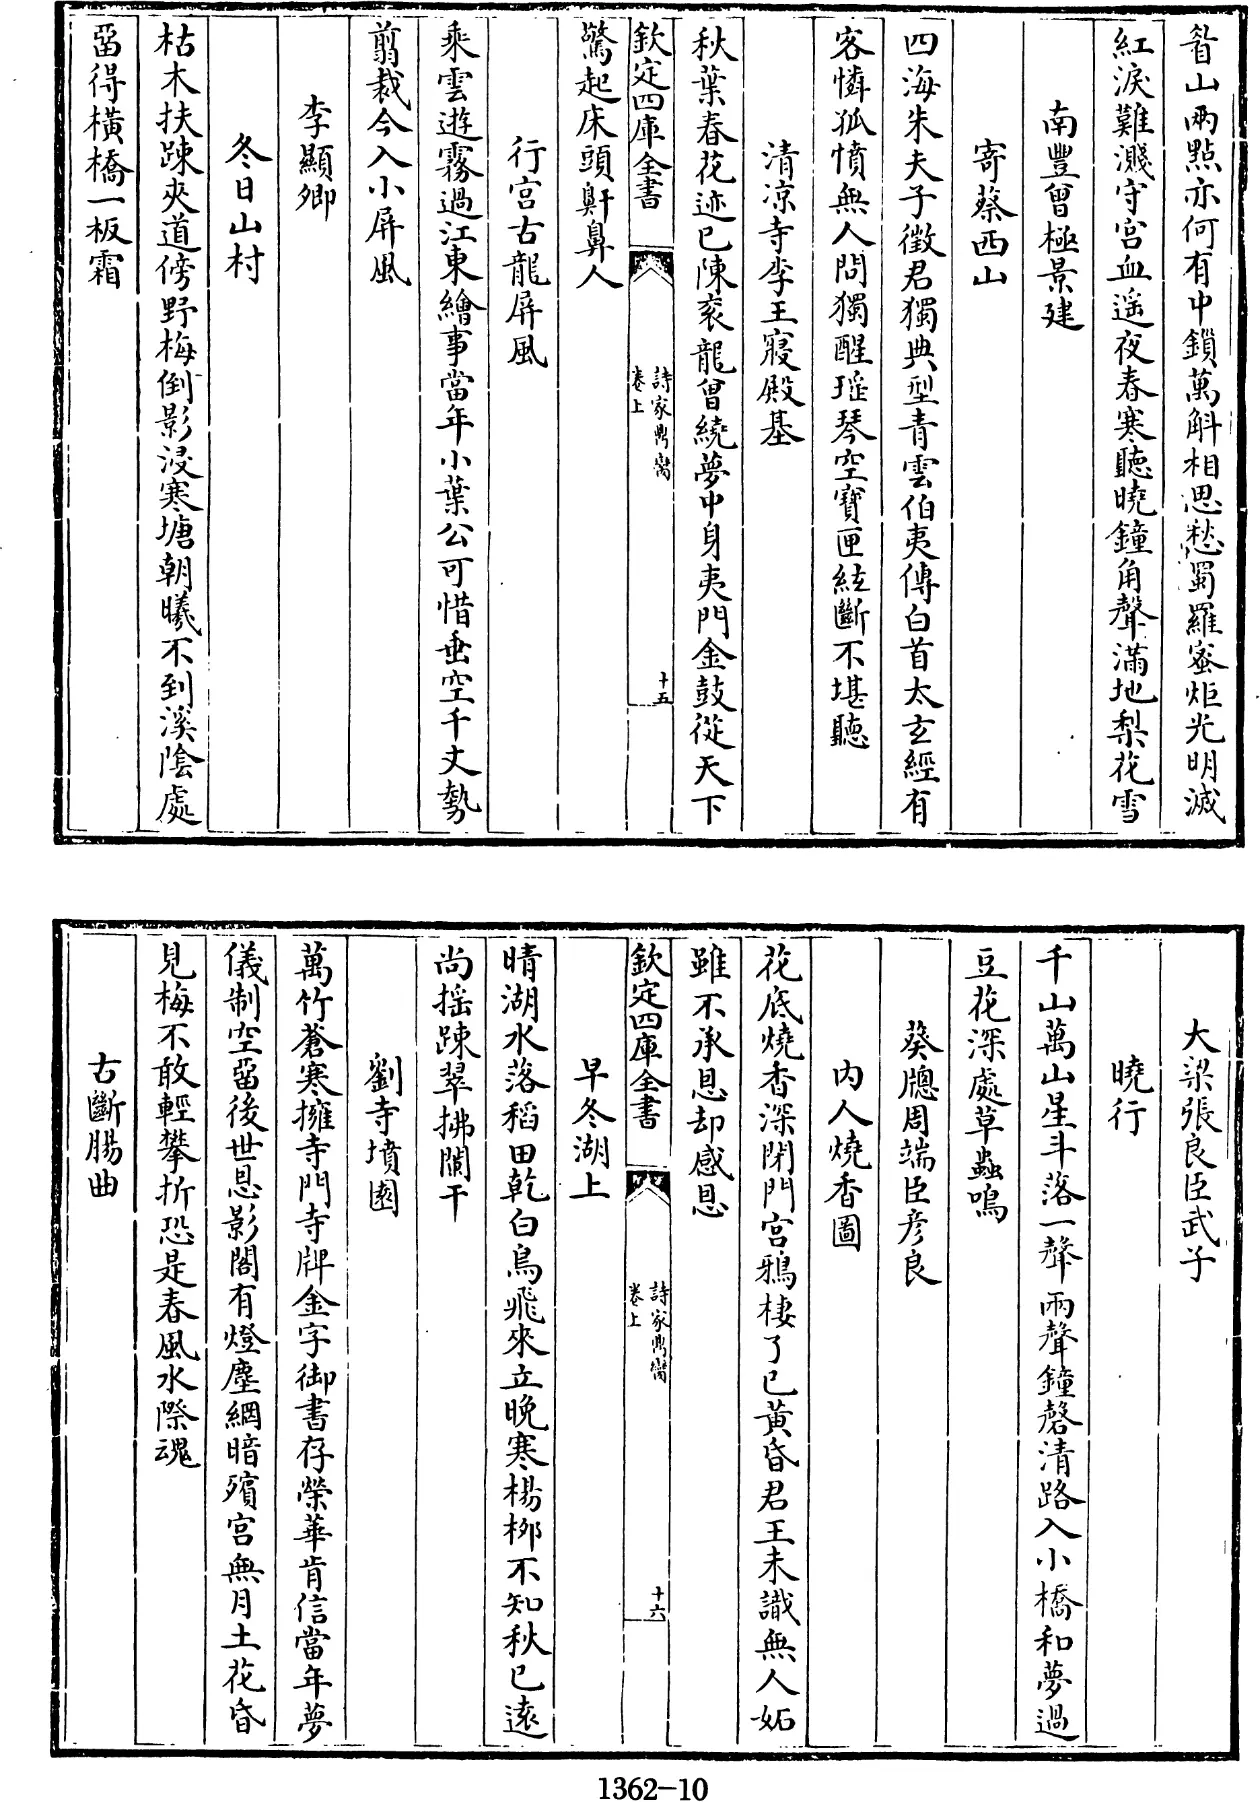 眉山兩點亦何有中鎖萬斛相思愁蜀羅蜜炬光明滅
紅淚難濺守宮血遥夜春寒聽曉鐘角聲滿地梨花雪
南豐曾極景建
寄蔡西山
四海朱夫子徵君獨典型青雲伯夷傳白首太玄經有
客憐孤憤無人問獨醒瑶琴空寶匣絃斷不堪聽
清凉寺李王寢殿基
秋葉春花迹已陳衮龍曾繞夢中身夷門金鼓從天下
欽定四庫全書
詩家鼎臠
卷上
十五
驚起床頭鼾鼻人
行宫古龍屏風
乘雲遊霧過江東繪事當年小葉公可惜垂空千丈勢
剪裁今入小屏風
李顯卿
冬日山村
枯木扶踈夾道傍野梅倒影浸寒塘朝曦不到溪陰處
畱得橫橋一板霜
大梁張良臣武子
曉行
千山萬山星斗落一聲兩聲鐘磬清路入小橋和夢過
豆花深處草蟲鳴
葵牕周端臣彦良
内人燒香圖
花底燒香深閉門宫鴉棲了已黄昏君王未識無人妬
雖不承恩却感恩
欽定四庫全書
詩家鼎臠
卷上
十六
早冬湖上
晴湖水落稻田乾白鳥飛來立晚寒楊柳不知秋已遠
尚揺踈翠拂闌干
劉寺墳園
萬竹蒼寒擁寺門寺牌金字御書存榮華肯信當年夢
儀制空畱後世恩影閣有燈塵網暗殯宫無月土花昏
見梅不敢輕攀折恐是春風水際魂
古斷腸曲
1362-10